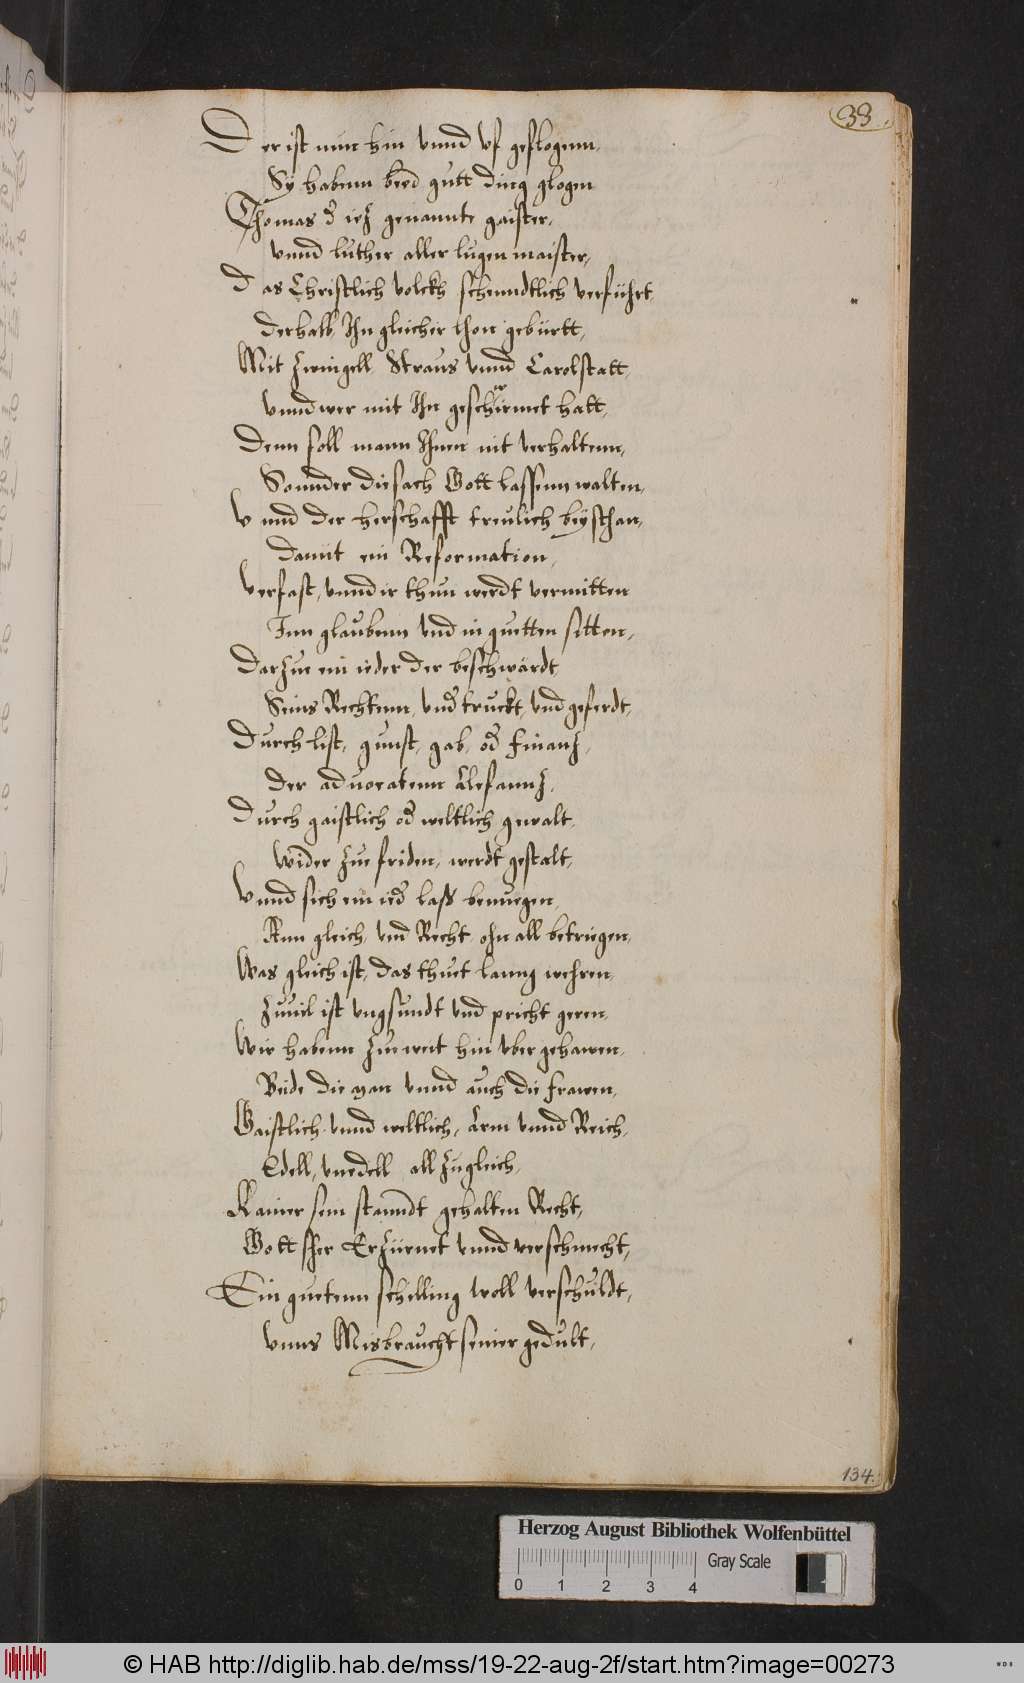 33
Der ist nun hin vnnd vf geflogenn,
Sy habenn beed gutt ding glogen
Thomas d iez genannte gaister,
vnnd luther aller lugen maister,
Das Christlich volckh schenndtlich verfuhrt,
derhalb Ihn gleicher lhon gebürtt,
Mit Zwingell Straus vnnd Carolstatt,
vnnd wer mit Ihn geschirmet hatt,
Denn soll mann Ihnen nit verhaltenn,
Sonnder die sach Gott lassenn walten,
Vnnd der herschafft treulich beysthan,
damit ein Reformation,
Verfast, vnnd ir thun werdt vermitten
Inn glaubenn vnd in guetten sitten,
Darzue ein ieder der beschwardt
Seins Rechtenn, vnd truckt, vnd geferdt,
Durch list, gunst, gab, od finanz,
der aduocatenn Alefannz,
Durch gaistlich od weltlich gewalt,
wider zue friden, werdt gestalt,
Vnnd sich ein ied lass benuegen,
Ann gleich, vnd Recht, ohn all betriegen,
Was gleich ist, das thuet lanng wehren,
Zuuil ist vngsundt vnd pricht geren,
Wir habenn zue weit hin vber gehawen,
Beide die man vnnd auch die frawen,
Gaistlich vnnd weltlich, Arm vnnd Reich,
Edell, vnedell all zugleich,
Kainer sein stanndt gehalten Recht,
Gott sher Erzürnet vnnd verschmecht,
Ein guetenn schilling woll verschuldt,
vnns Misbraucht seiner gedult,
134.
Herzog August Bibliothek Wolfenbüttel
Gray Scale
0 1 2 3 4
© HAB http://diglib.hab.de/mss/19-22-aug-2f/start.htm?image=00273